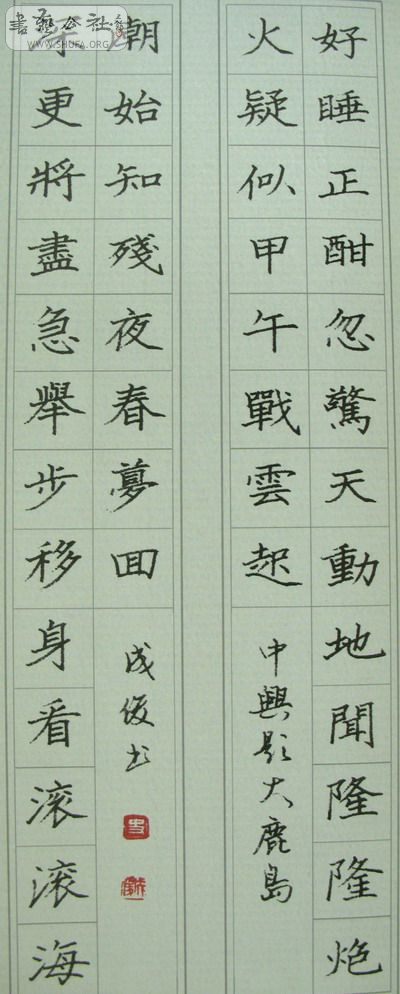 書藝公社
WWW.SHUFA.ORG
好睡正酣忽驚天動地聞隆隆炮
火疑似甲午戰雲起
中興影大鹿島
更將盡急舉步移身看滚滚海
潮始知殘夜春夢回
成俊书